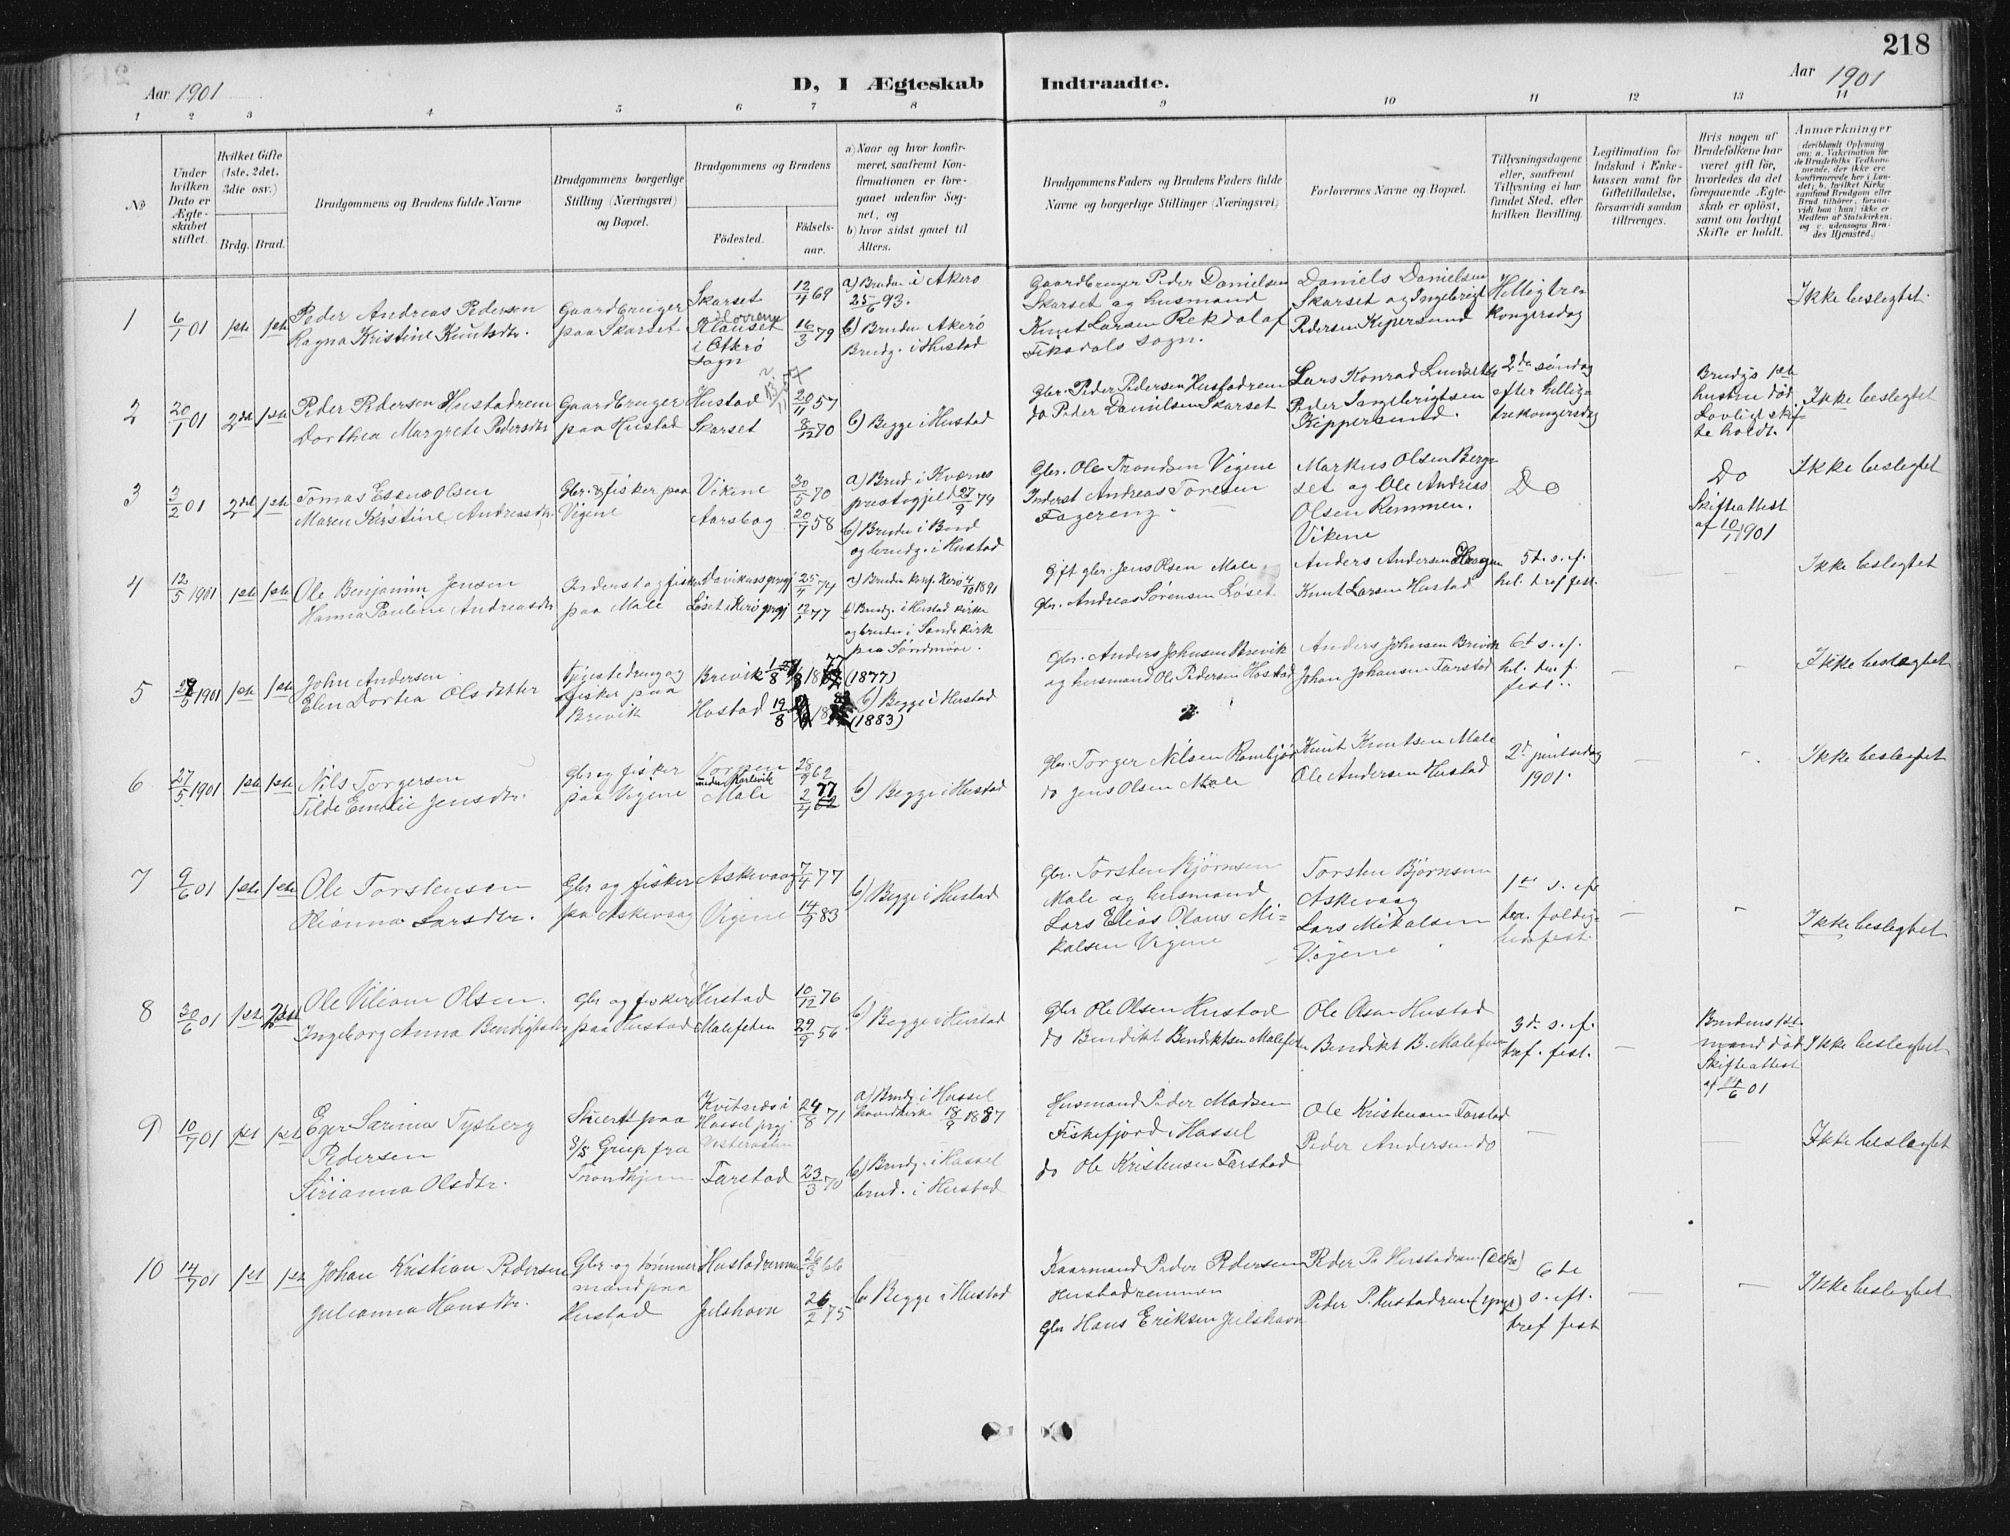 218
Aar 1901
D, I Ægteskab Indtraadte.
Aar 1901
1 2 3 4 5 6 7 8 9 10 11 12 13 14
No
Under hvilken Dato er Ægteskabet stiftet.
Hvilket Gifte (1ste, 2det, 3die osv.)
Brdg. Brud.
Brudgommens og Brudens fulde Navne
Brudgommens borgerlige Stilling (Næringsvei) og Bopæl.
Brudgommens og Brudens
Fødested. Fødselsaar.
a) Naar og hvor konfirmeret, saafremt Konfirmationen er foregaaet udenfor Sognet, og
b) hvor sidst gaaet til Alters.
Brudgommens Faders og Brudens Faders fulde Navne og borgerlige Stillinger (Næringsvei)
Forlovernes Navne og Bopæl.
Tillysningsdagene eller, saafremt Tillysning ei har fundet Sted, efter hvilken Bevilling.
Legitimation for Indskud i Enkekassen samt for Giftetilladelse, forsaavidt saadan tiltrænges.
Hvis nogen af Brudefolkene har været gift før, hvorledes da det foregaaende Ægteskab er opløst, samt om lovligt Skifte er holdt.
Anmærkninger
deriblandt Oplysning om: a. Vakcination for de Brudefolks Vedkommende, der ikke ere konfirmerede her i Landet; b. hvilket Kirkesamfund Brudgom eller Brud tilhører, forsaavidt han (hun) ikke er Medlem af Statskirken, og c. udensogns Brudes Hjemsted.
1
6/1 01
1ste 1ste
Peder Andreas Pedersen
Ragna Kristine Knutsdtr.
Gaardbruger
paa Skarset
Skarset
Klauset
i Otkrø
sogn
12/4 69
16/3 79
a) Bruden i Akerø
25/6 93.
b) Bruden Akerø
Brudg. i Hustad
Gaardbruger Peder Danielsen
Skarset og husmand
Knut Larsen Rekdal af
Fiksdals sogn.
Daniels Danielsen
Skarset og Ingebrigt
Pedersen Kipersund
Helligtre-
kongersdag
Ikke beslegtet.
2
20/1 01
2det 1ste
Peder Pedersen Hustadrem
Dorthea Margrete Pedersdtr
Gaardbruger
paa Hustad
Hustad
Skarset
20/11 57
8/12 70
b) Begge i Hustad
Gbr. Peder Pedersen Hustadrem
do Peder Danielsen Skarset
Lars Konrad
Peder Ingebrigtsen
Kippersund.
2de søndag
efter hellig-
trekongersdag
Brudgs 1ste
hustru død
Lovligt skif
te holdt.
Ikke beslegtet
3
3/2 01
2det 1ste
Tomas Olsen
Maren Kristine Andreasdtr.
Gbr. & fisker paa
Vigene
Vikene
Aarsbog
30/5 70
20/7 58
a) Brud i Kværnes
prestegjeld 27/9 74
b) Bruden i Bud
og brudg. i Hustad
Gbr. Ole Trondsen Vigene
Inderst Andreas Toresen
Fagereng.
Markus Olsen Berg-
set og Ole Andreas
Olsen Remmen.
Vikene
Do
Do
Skifteattest
af 10/1 1901
Ikke beslegtet
4
12/5 1901
1ste 1ste
Ole Benjamin Jensen
Hanna Pauline Andreasdtr
Inderst og fisker
paa Male
Løset i Herø prgj
25/7 74
12/1 77
a) Bruden konf. Herø 4/10 1891
b) Brudg. i Hustad kirke
og bruden i Sande kirk
paa Søndmøre.
gbr. Jens Olsen Male.
Gbr. Andreas Sørensen Løset
Anders Andersen Haugen
Knut Larsen Hustad
5t. s. f.
hel. tref fest.
Ikke beslegtet
5
27/5 1901
1ste 1ste
John Andersen
Elen Dortea Olsdatter
fisker paa
Brevik
Brevik 1/8 18 77 (1877)
Hostad 19/8 18 83 (1883)
b) Begge i Hustad
Gbr. Anders Johnsen Brevik
og husmand Ole Pedersen Hostad
Anders Johnsen Brevik
Johan Johansen Farstad
6t s. f.
hel. tre f.
fest.
Ikke beslegtet
6
27/5 1901
1ste 1ste
Nils Torgersen
Tilde Emelie Jensdtr.
Gbr og fisker
paa Vigene
under Karlsvik
Male
28/9 62
2/4 77
b) Begge i Hustad
Gbr. Torger Nilsen
do Jens Olsen Male
Knut Knutsen Male
Ole Andersen Hustad
2d pintsedag
1901.
Ikke beslegtet
7
9/6 01
1ste 1ste
Ole Torstensen
Olianna Larsdtr.
Gbr og fisker
paa Askevaag
Askevaag
Vigene
7/4 77
14/9 83
b) Begge i Hustad
Gbr. Torsten Bjørnsen
Male og husmand
Lars Elias Olaus Mi-
kalsen Vigene
Torsten Bjørnsen
Askevaag
Lars Mikalsen
Vigene
1te s. ef.
tre. foldig-
heds fest.
Ikke beslegtet
8
30/6 01
1ste 2den
Ole Viliam Olsen.
Ingeborg Anna Bendigtsdtr
Gbr og fisker
paa Hustad
Hustad
Malefeten
10/12 76
29/9 56
b) Begge i Hustad
Gbr Ole Olsen Hustad
do Bendikt Bendiktsen Malefeten
Ole Olsen Hustad
Bendikt B. Malefeten
3d s. f.
tref. fest.
Brudens 1ste
mand død
Skifteattest
af 01
Ikke beslegtet
9
10/7 01
1ste 1ste
Eger Sarinus Tysberg
Pedersen
Sirianna Olsdtr.
Stuert paa
S/S Greip fra
Trondhjem
Kvitnæs i
Hassel prgj
Vesteraalen
Farstad
24/8 71
23/3 70
a) Brudg. i Hassel
18/9 1887
b) Brudg. i Hassel
brud. i Hustad
Husmand Peder Madsen
Fiskefjord i Hassel
do Ole Kristensen Farstad
Ole Kristensen Farstad
Peder Andersen do
Ikke beslegtet
10
14/7 01
1ste 1ste
Johan Kristian Pedersen
Julianna Hansdtr.
Gbr og tømmer
mand paa
Hustad
Hustadremmen
Julshavn
26/3 66
26/2 75
b. Begge i Hustad
Kaarmand Peder Pedersen
Hustadremmen
Gbr Hans Eriksen Julshavn
Peder P. Hustadrem (eldre)
Peder P. Hustadrem (yngr)
6te
s. eft.
tref fest
Ikke beslegtet